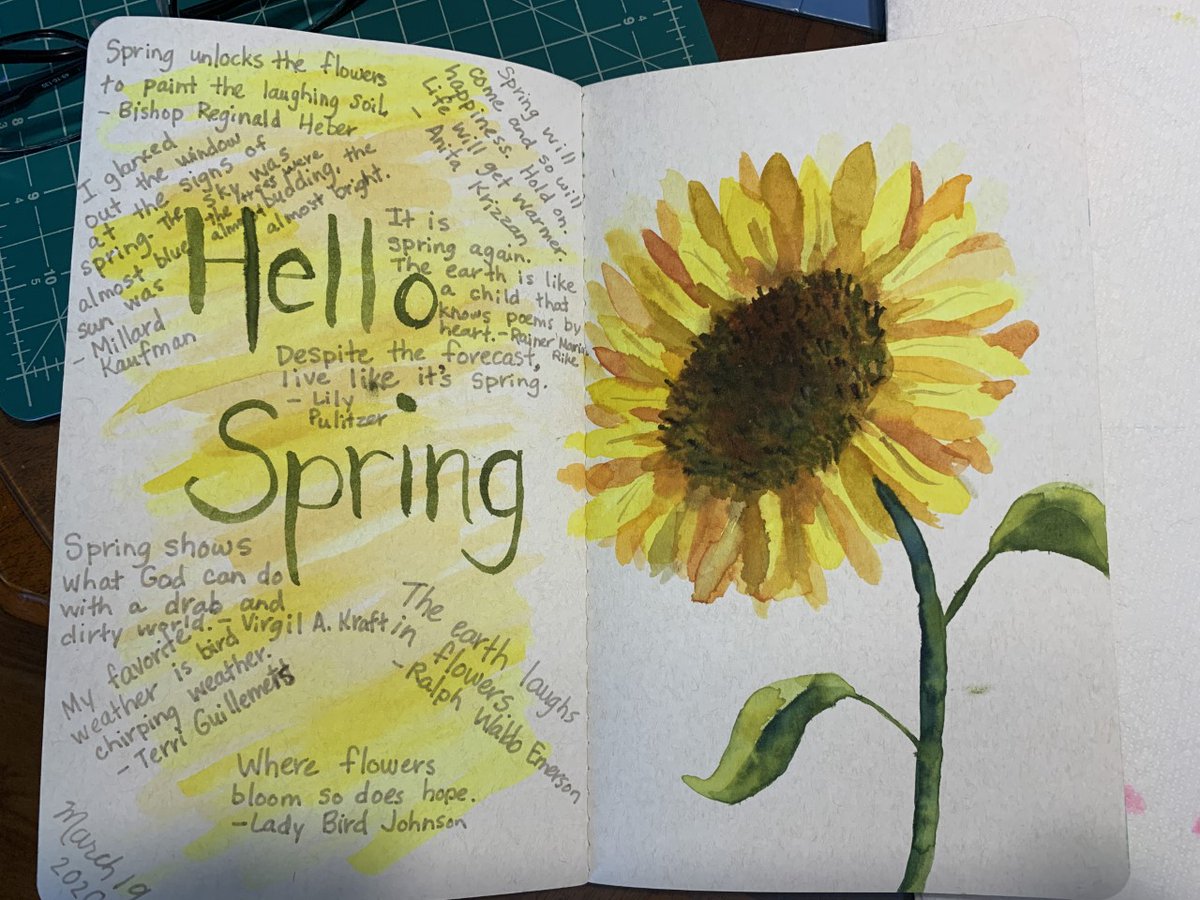 Spring unlocks the flowers
to paint the laughing soil.
- Bishop Reginald Heber
Spring will
come and so will
happiness. Hold on.
Life will get warmer.
- Anita Krizzan
I glanced
out the window
at the signs of
spring. The sky was
almost blue, the trees were
almost budding, the
sun was almost bright.
- Millard
Kaufman
Hello
It is
spring again.
The earth is like
a child that
knows poems by
heart. - Rainer Maria
Rilke
Despite the forecast,
live like it's spring.
- Lily
Pulitzer
Spring
Spring shows
what God can do
with a drab and
dirty world. - Virgil A. Kraft
My favorite
weather is bird
chirping weather.
- Terri Guillemets
The earth laughs
in flowers.
- Ralph Waldo Emerson
Where flowers
bloom so does hope.
- Lady Bird Johnson
March 19
2020